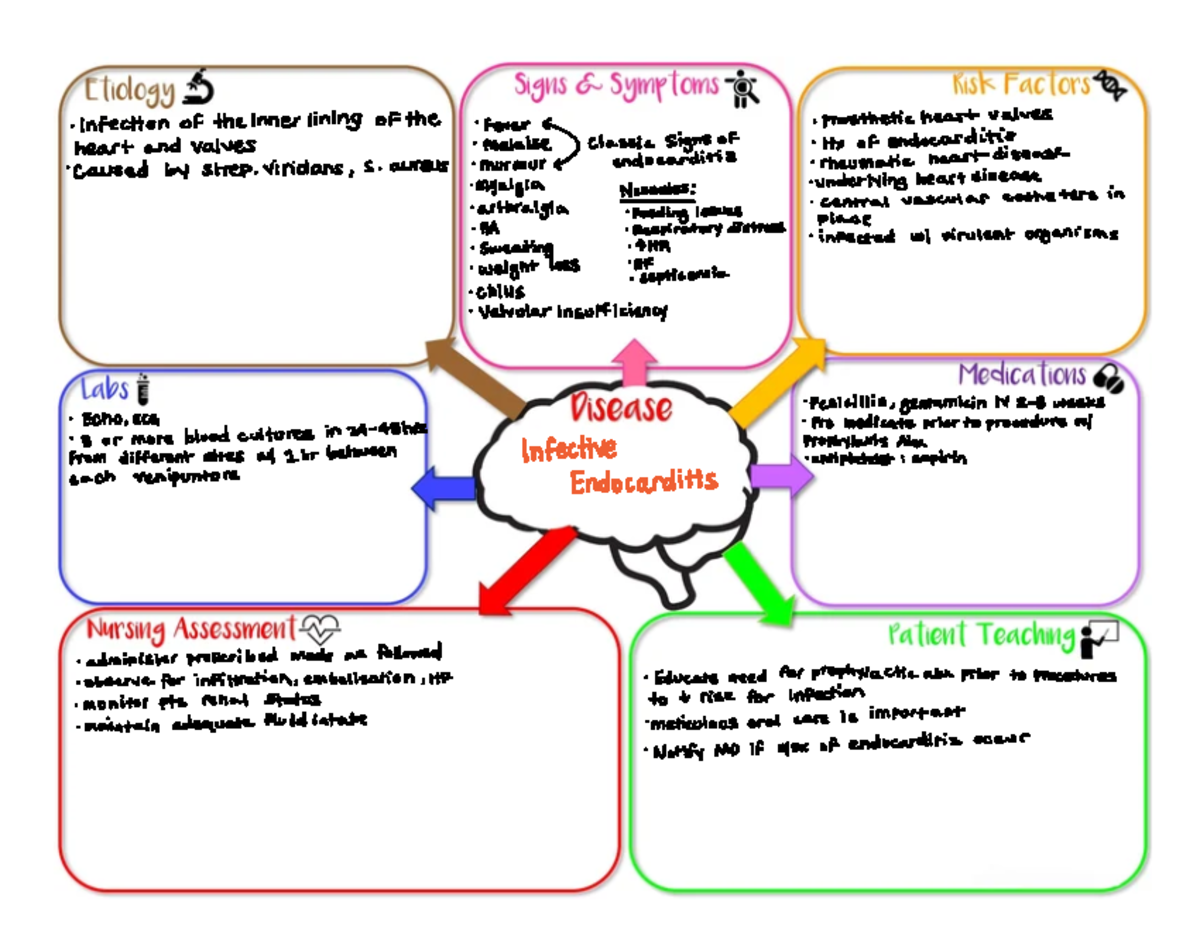 Etiology
· Infection of the inner lining of the
heart and valves
· Caused by strep. viridans, S. aureus
Signs & Symptoms
· Fever
· Malaise
· murmur
Classic Signs of
endocarditis
· Myalgia
· arthralgia
· HA
· Sweating
· weight loss
· chills
· Valvular insufficiency
Neonates:
· Feeding issues
· Respiratory distress
· ↑HR
· HF
· septicemia
Risk Factors
· Prosthetic heart valves
· Hx of endocarditis
· rheumatic heart disease
· underlying heart disease
· central vascular catheters in
place
· infected w/ virulent organisms
Labs
· Echo, ECG
· 3 or more blood cultures in 24-48 hrs
from different sites w/ 1 hr between
each venipuncture
Disease
Infective
Endocarditis
Medications
· Penicillin, gentamicin IV 2-8 weeks
· Pre medicate prior to procedure w/
Prophylaxis Abx
· antiplatelet : aspirin
Nursing Assessment
· administer prescribed meds as followed
· observe for infiltration, embolisation, HF
· monitor pts renal status
· maintain adequate fluid intake
Patient Teaching
· Educate need for prophylactic abx prior to procedures
to ↓ risk for infection
· meticulous oral care is important
· Notify MD if s/sx of endocarditis occur